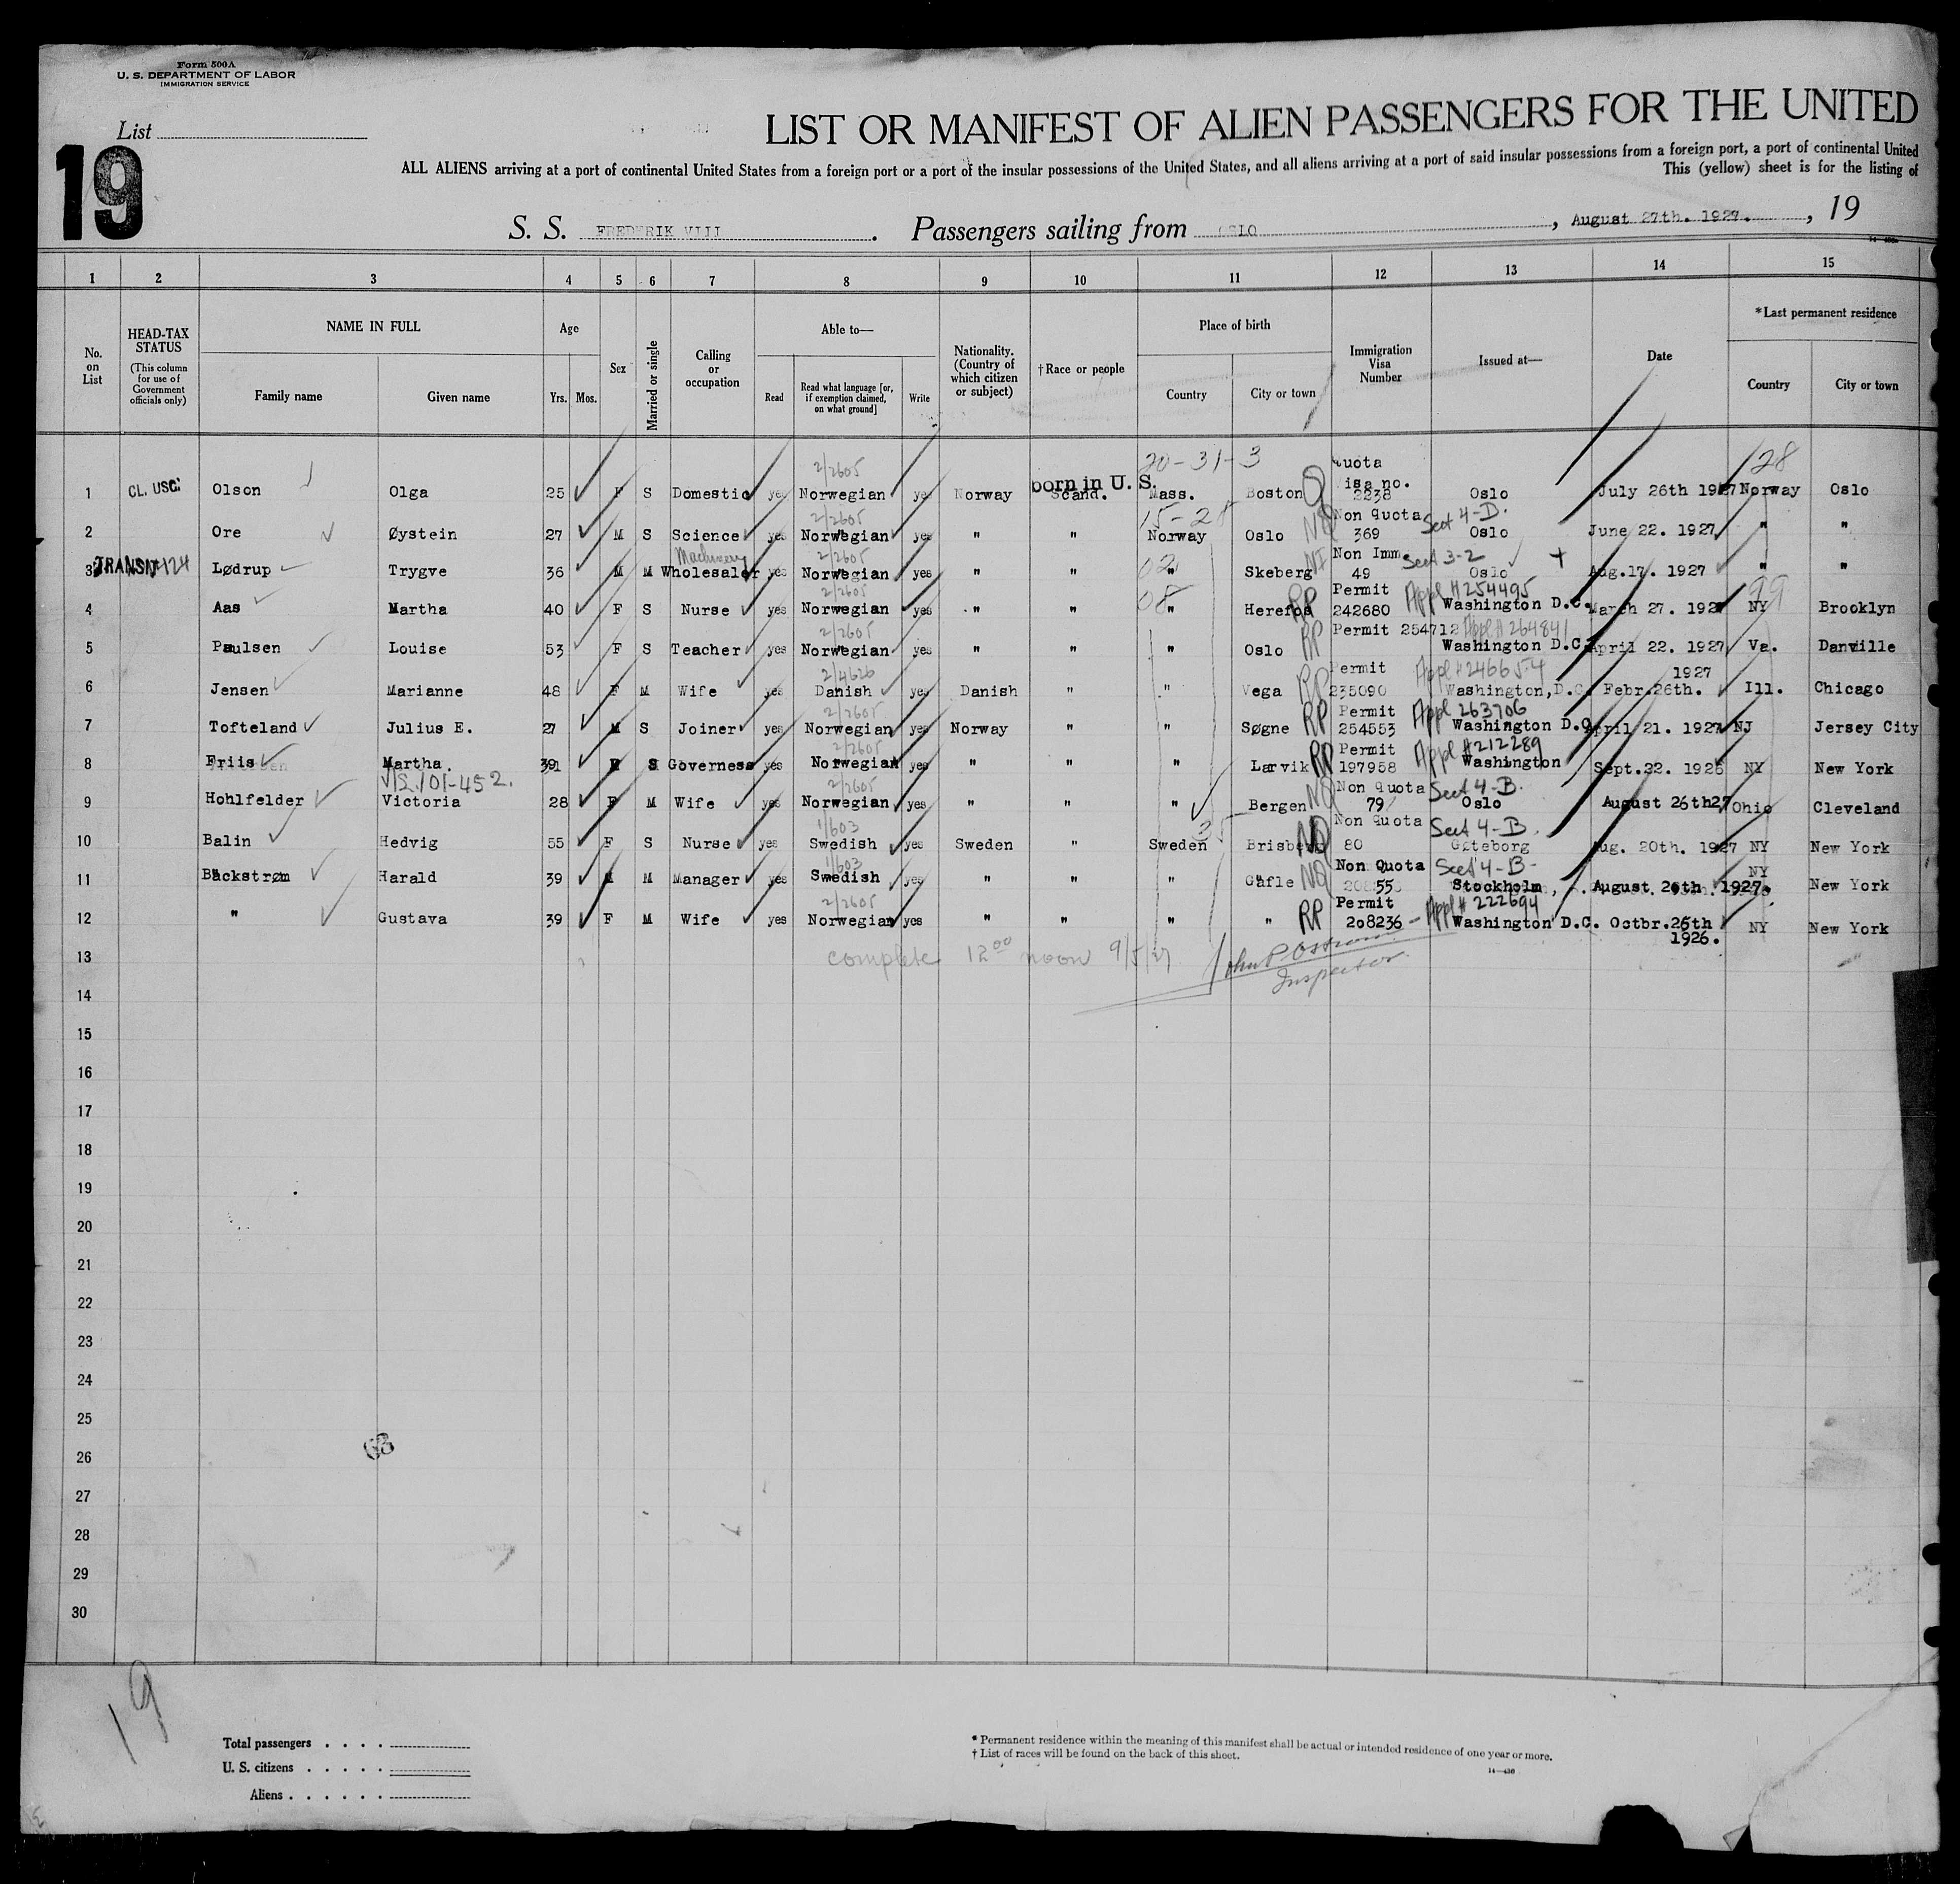 Form 500A
U. S. DEPARTMENT OF LABOR
IMMIGRATION SERVICE
List
19
LIST OR MANIFEST OF ALIEN PASSENGERS FOR THE UNITED
ALL ALIENS arriving at a port of continental United States from a foreign port or a port of the insular possessions of the United States, and all aliens arriving at a port of said insular possessions from a foreign port, a port of continental United
This (yellow) sheet is for the listing of
S. S. FREDERIK VIII . Passengers sailing from OSLO , August 27th. 1927. , 19
1 2 3 4 5 6 7 8 9 10 11 12 13 14 15
No. on List
HEAD-TAX STATUS (This column for use of Government officials only)
NAME IN FULL Family name Given name
Age Yrs. Mos.
Sex
Married or single
Calling or occupation
Able to— Read Read what language [or, if exemption claimed, on what ground] Write
Nationality. (Country of which citizen or subject)
†Race or people
Place of birth Country City or town
Immigration Visa Number
Issued at—
Date
*Last permanent residence Country City or town
2/2605 20-31-3 Quota 128
1 CL. USC. Olson Olga 25 F S Domestic yes Norwegian yes Norway born in U. S. Scand. Mass. Boston Q Visa no. 2238 Oslo July 26th 1927 Norway Oslo
2/2605 15-28 Non Quota Sect 4-D.
2 Ore Øystein 27 M S Science yes Norwegian yes " " Norway Oslo NQ 369 Oslo June 22. 1927 " "
Machinery 2/2605 Non Imm Sect 3-2
3 TRANSIT Lødrup Trygve 36 M M Wholesaler yes Norwegian yes " " " Skeberg NI 49 Oslo Aug.17. 1927 " "
2/2605 08 Permit Appl # 254495 99
4 Aas Martha 40 F S Nurse yes Norwegian yes " " " Herefos RP 242680 Washington D.C. March 27. 1927 NY Brooklyn
2/2605 Permit 254712 Appl # 264841
5 Paulsen Louise 53 F S Teacher yes Norwegian yes " " " Oslo RP Washington D.C. April 22. 1927 Va. Danville
2/4626 Permit Appl # 246654 1927
6 Jensen Marianne 48 F M Wife yes Danish yes Danish " " Vega RP 235090 Washington,D.C. Febr.26th. Ill. Chicago
2/2605 Permit Appl 263706
7 Tofteland Julius E. 27 M S Joiner yes Norwegian yes Norway " " Søgne RP 254553 Washington D.C. April 21. 1927 NJ Jersey City
2/2605 Permit Appl # 212289
8 Friis Martha. 39 F S Governess yes Norwegian yes " " " Larvik RP 197958 Washington Sept.22. 1926 NY New York
V/S. 101-452. 2/2605 Non Quota Sect 4-B.
9 Hohlfelder Victoria 28 F M Wife yes Norwegian yes " " " Bergen NQ 79 Oslo August 26th27 Ohio Cleveland
1/603 35 Non Quota Sect 4-B.
10 Balin Hedvig 55 F S Nurse yes Swedish yes Sweden " Sweden Brisberg NQ 80 Gøteborg Aug. 20th. 1927 NY New York
1/603 Non Quota Sect 4-B- NY
11 Bäckstrøm Harald 39 M M Manager yes Swedish yes " " " Gäfle NQ 55 Stockholm, August 20th 1927. New York
2/2605 Permit Appl # 222694
12 " Gustava 39 F M Wife yes Norwegian yes " " " " RP 208236 - Washington D.C. Octbr.26th 1926. NY New York
13 complete 12 00 noon 9/5/27 John P Ostrom
Inspector.
14
15
16
17
18
19
20
21
22
23
24
25
26
27
28
29
30
63
19
Total passengers . . . .
U. S. citizens . . . . .
Aliens . . . . . .
* Permanent residence within the meaning of this manifest shall be actual or intended residence of one year or more.
† List of races will be found on the back of this sheet.
14—430